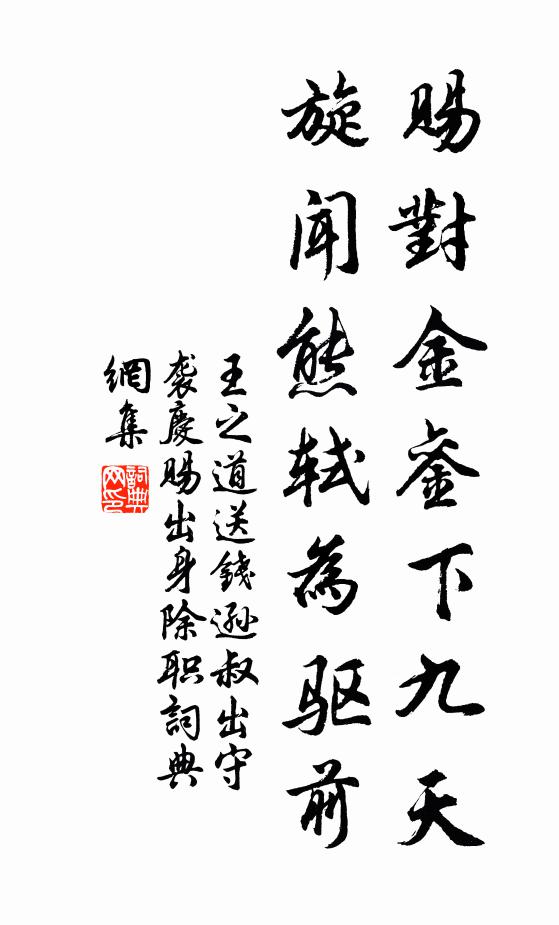 賜對金銮下九天
旋聞熊轼為驱前
王之道送錢遜叔出守
袭慶賜出身除职詞典
網集
詞典网印